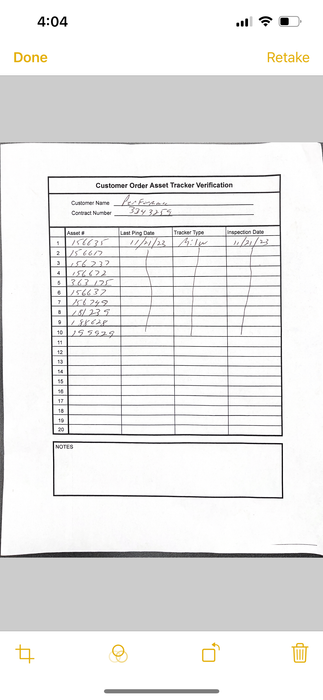 4:04
Done Retake
Customer Order Asset Tracker Verification
Customer Name
Contract Number 3343259
Asset # Last Ping Date Tracker Type Inspection Date
1 156635 11/21/23 11/21/23
2 156617
3 156737
4 156672
5 363175
6 156637
7 156749
8 151239
9 188628
10 155929
11
12
13
14
15
16
17
18
19
20
NOTES